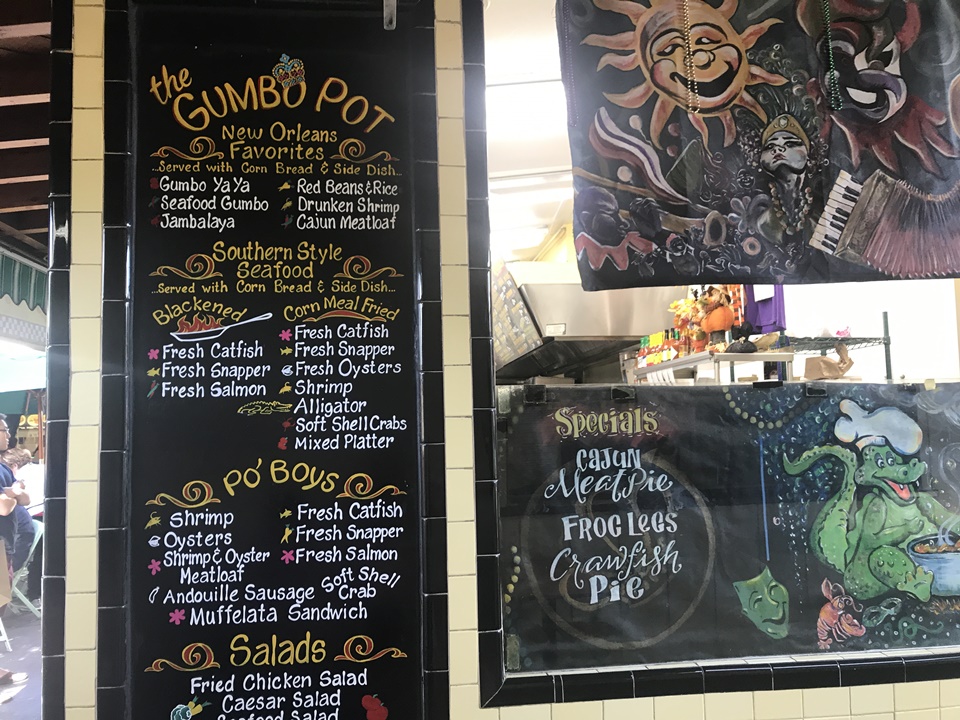 the
GUMBO POT
New Orleans
Favorites
...Served with Corn Bread & Side Dish...
Gumbo YaYa
Seafood Gumbo
Jambalaya
Red Beans & Rice
Drunken Shrimp
Cajun Meatloaf
Southern Style
Seafood
...Served with Corn Bread & Side Dish...
Blackened
Fresh Catfish
Fresh Snapper
Fresh Salmon
Corn Meal Fried
Fresh Catfish
Fresh Snapper
Fresh Oysters
Shrimp
Alligator
Soft Shell Crabs
Mixed Platter
Po' Boys
Shrimp
Oysters
Shrimp & Oyster
Meatloaf
Fresh Catfish
Fresh Snapper
Fresh Salmon
Andouille Sausage
Soft Shell
Crab
Muffelata Sandwich
Salads
Fried Chicken Salad
Caesar Salad
Seafood Salad
Specials
CAJUN
Meat Pie
FROG LEGS
Crawfish
PIE